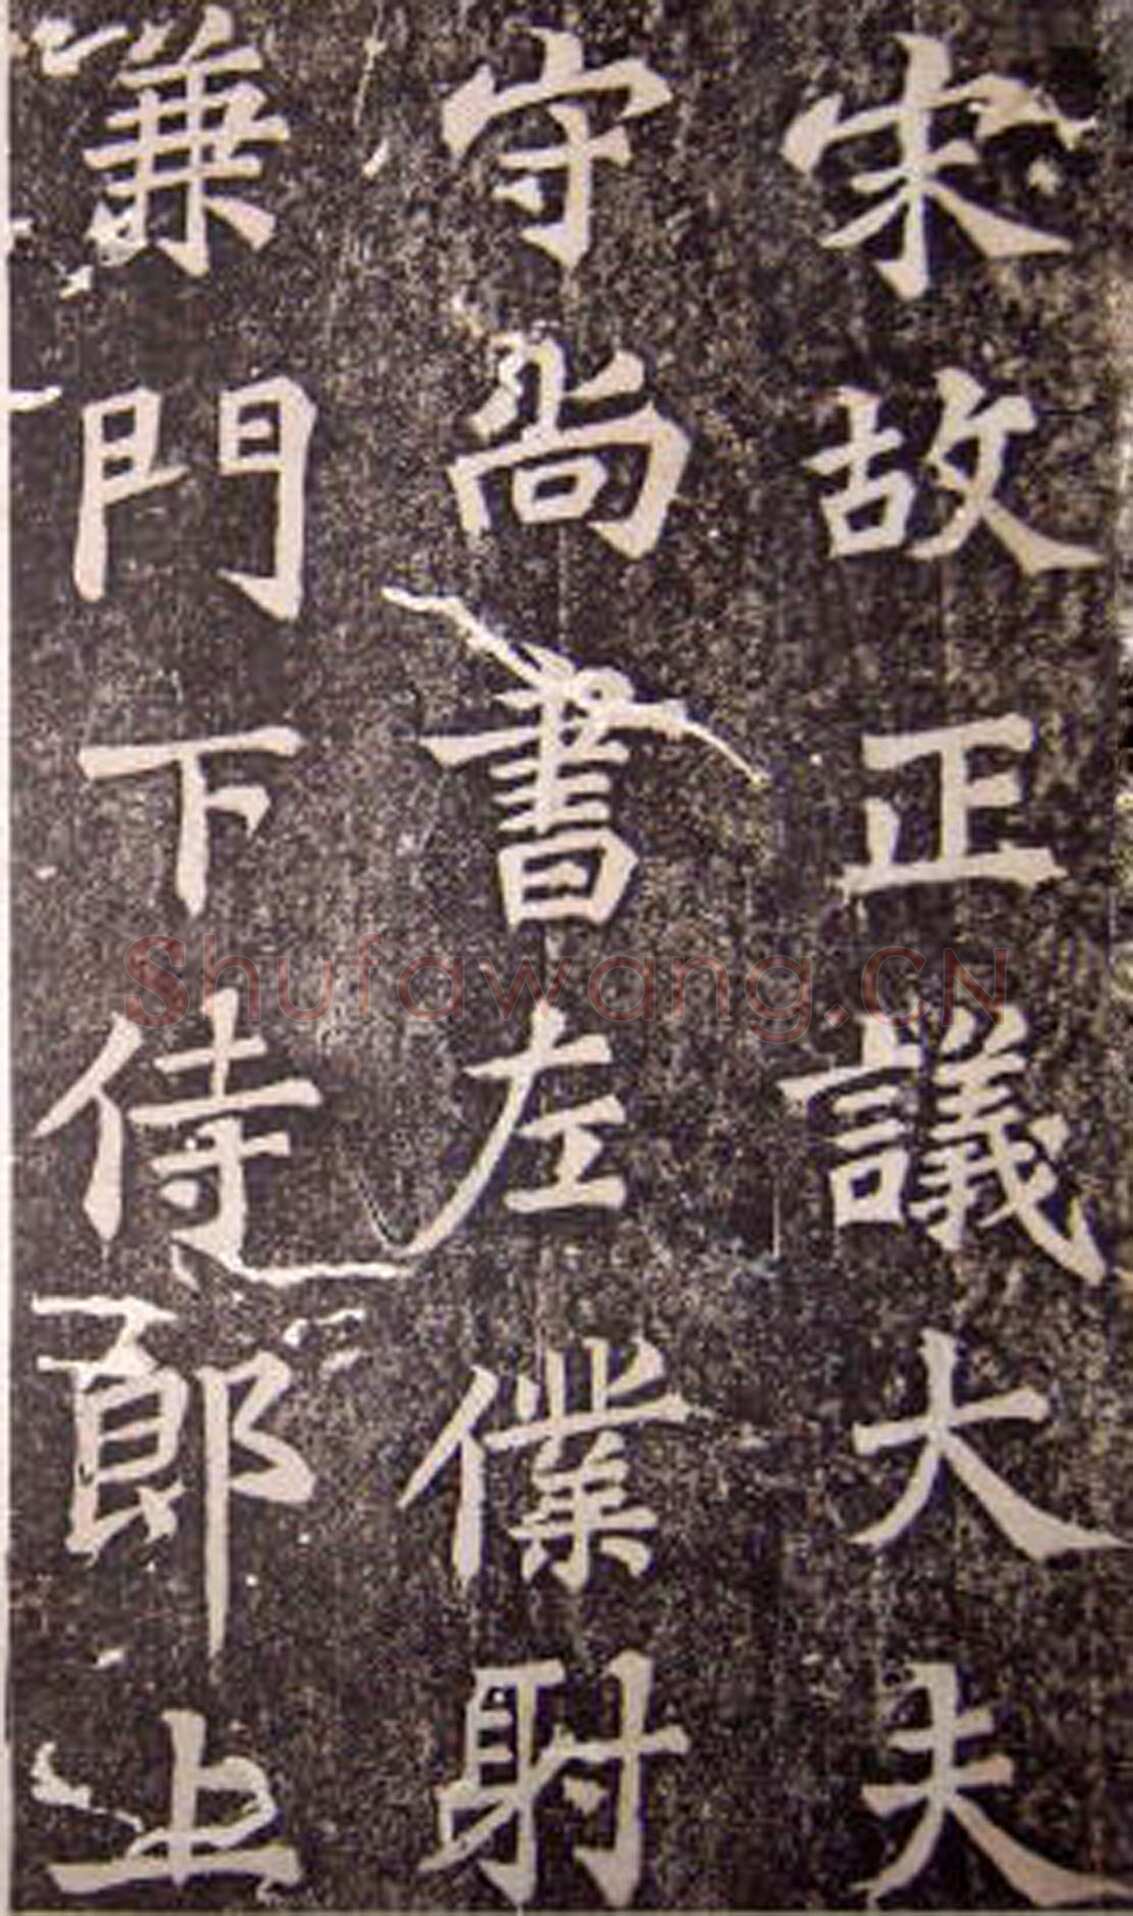 宋故正議大夫
守尚書左僕射
兼門下侍郎上
Shufawang.CN